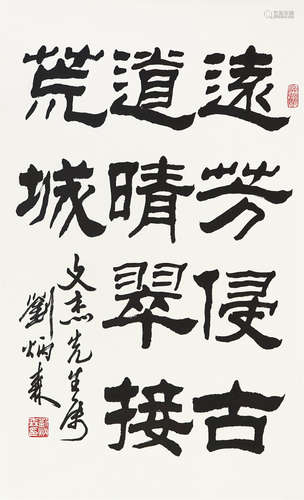 遠芳侵古
道晴翠接
荒城
文杰先生属
劉炳森